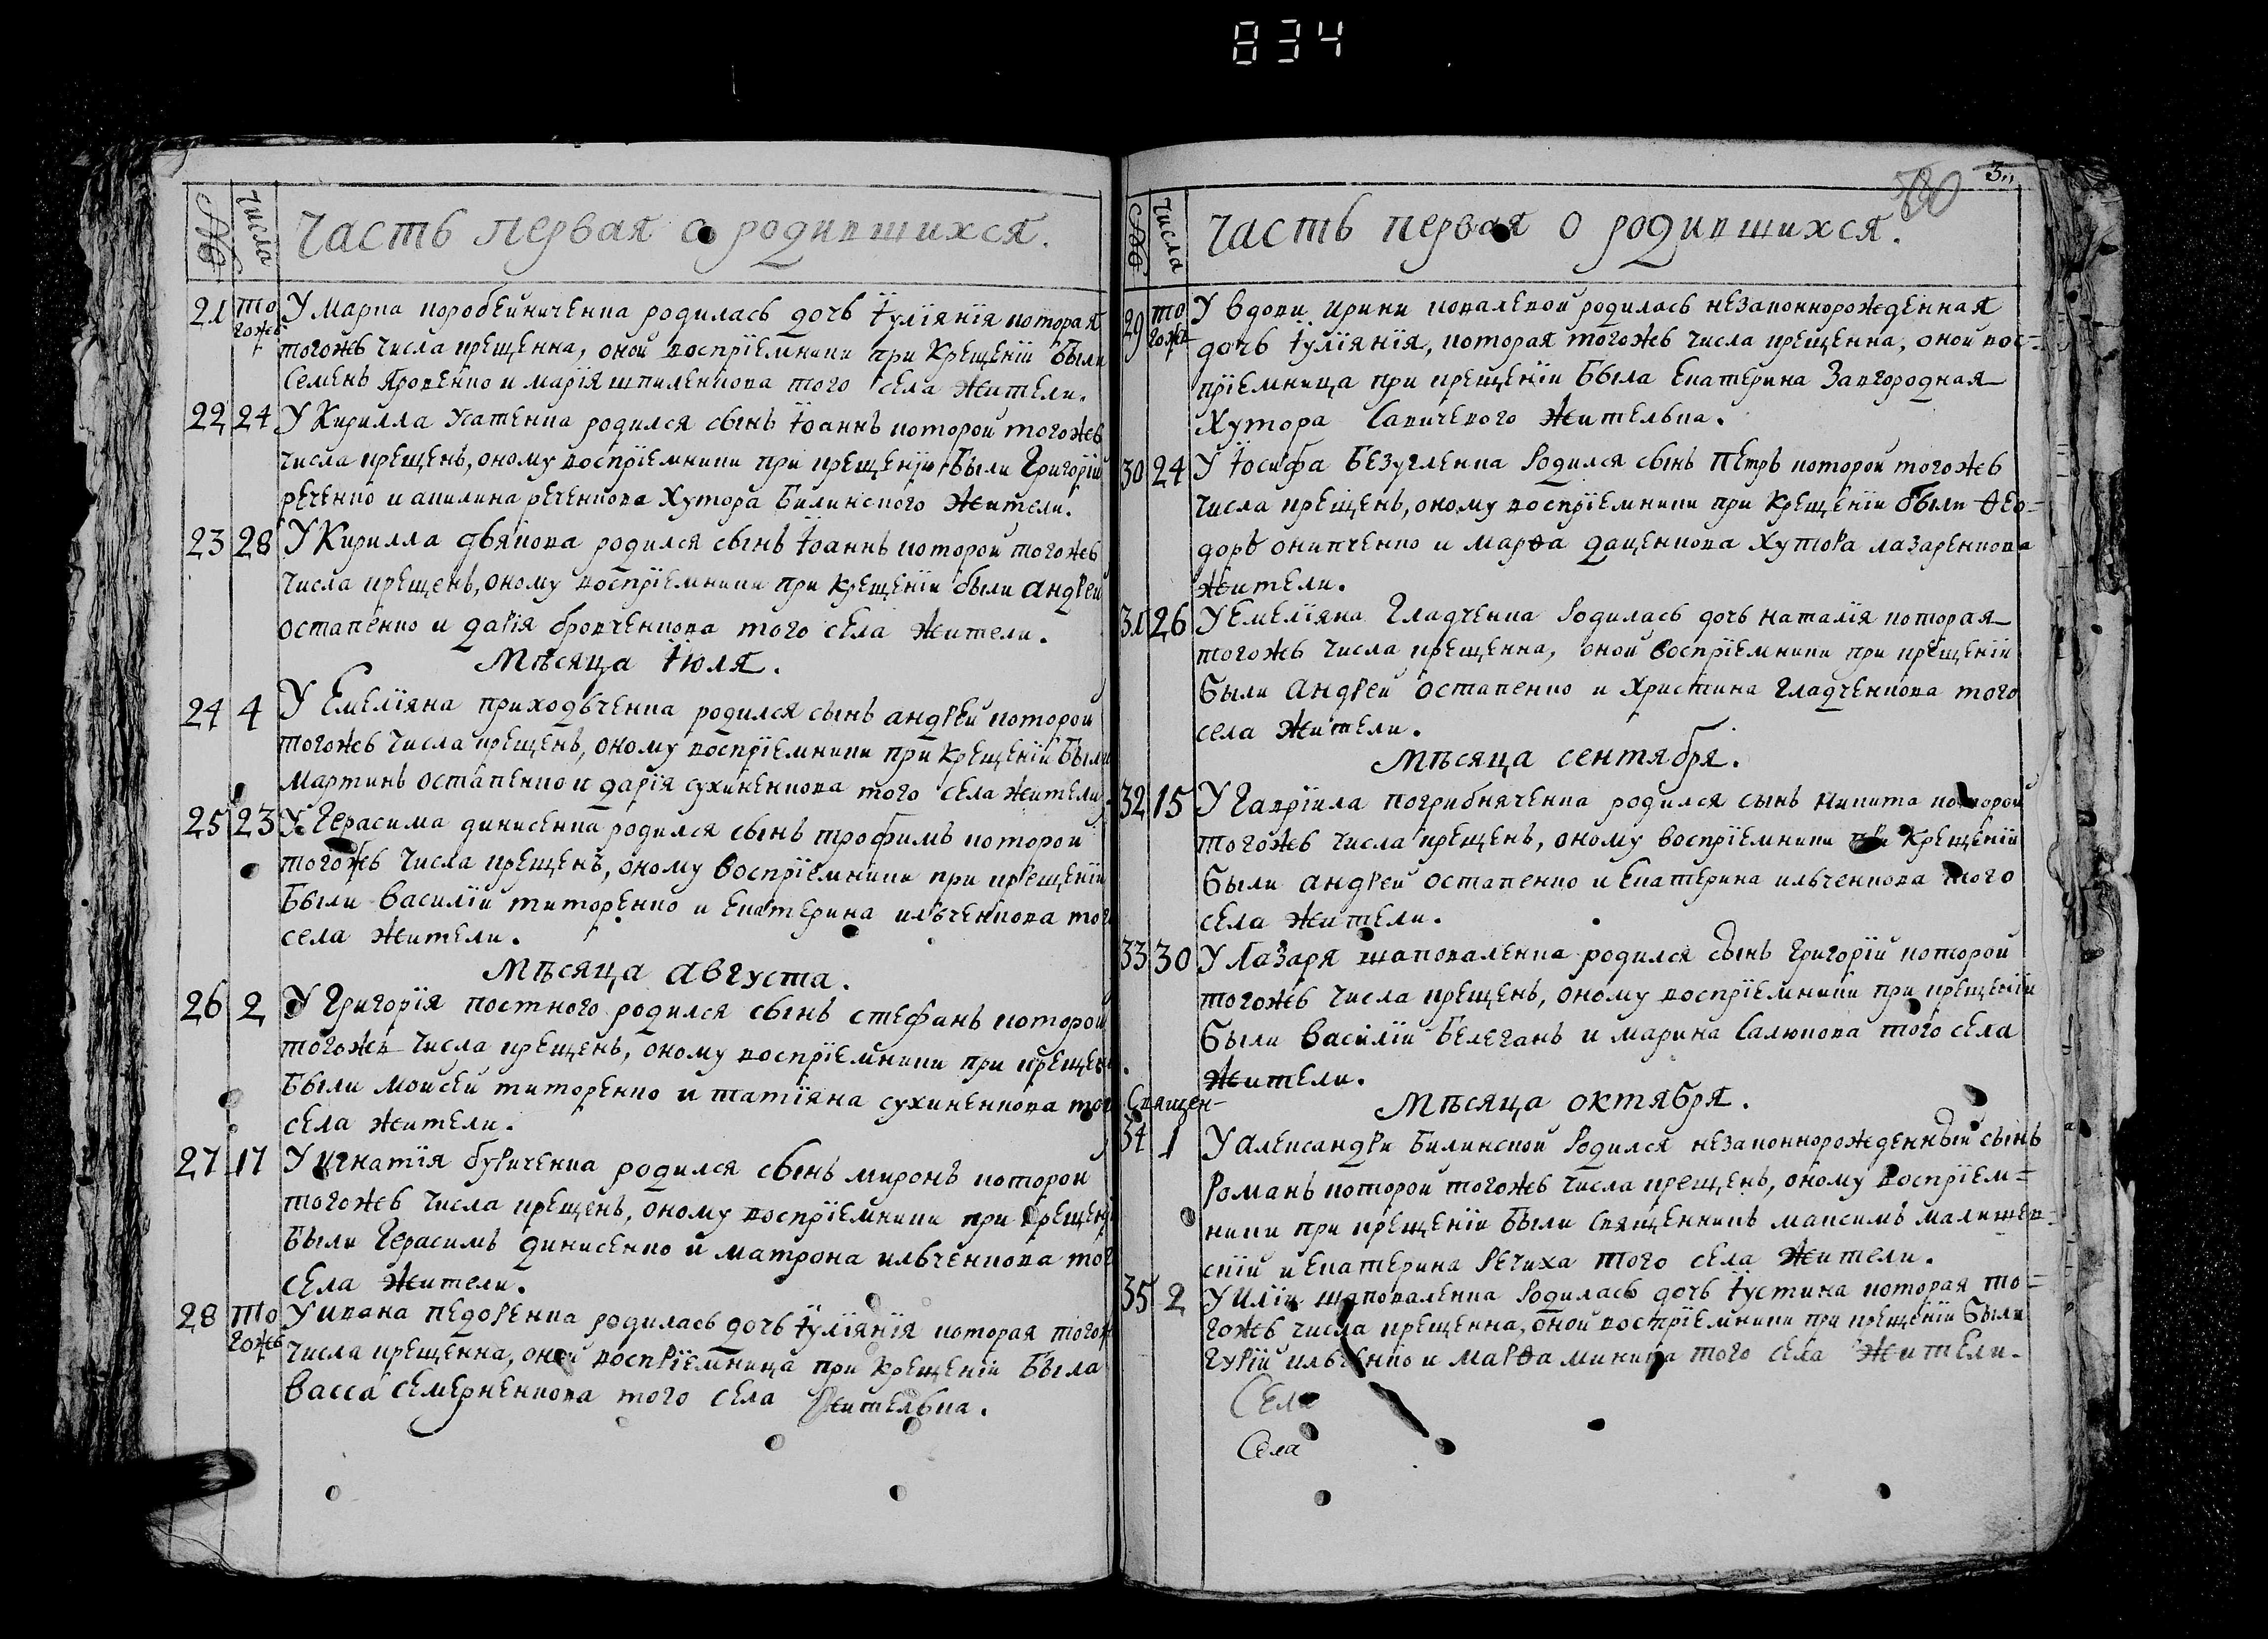 834
№
числа
Часть первая о родившихся.
21
то
гожъ
У Марка коробейниченка родилась дочь Іуліянія которая
тогожъ числа крещенна, оной воспріемники при Крещеніи были
Семенъ Яровенко и марія шпиленкова того села жители.
22
24
У Кирилла Усатенка родился сынъ Іоаннъ которой тогожъ
числа крещенъ, оному воспріемники при крещеніи были Григорій
реченко и акилина реченкова Хутора Билинского жители.
23
28
У Кирилла дьякова родился сынъ Іоаннъ которой тогожъ
числа крещенъ, оному воспріемники при крещеніи были андрей
остапенко и дарія бровченкова того села жители.
Мѣсяца Іюля.
24
4
У Емеліяна приходьченка родился сынъ андрей которой
тогожъ числа крещенъ, оному воспріемники при крещеніи были
мартинъ остапенко и дарія сухиненкова того села жители.
25
23
У Герасима динисенка родился сынъ трофимъ которой
тогожъ числа крещенъ, оному воспріемники при крещеніи
были василій титоренко и екатерина ильченкова того
села жители.
Мѣсяца августа.
26
2
У Григорія постного родился сынъ стефанъ которой
тогожъ числа крещенъ, оному воспріемники при крещен
были моисей титоренко и татіяна сухиненкова того
села жители.
27
17
У игнатія буриченка родился сынъ миронъ которой
тогожъ числа крещенъ, оному воспріемники при крещені
были Герасимъ динисенко и матрона ильченкова тог
села жители.
28
то
гожъ
У ивана педоренка родилась дочь Іуліянія которая тогож
числа крещенна, оной воспріемница при крещеніи была
васса семерненкова того села жителька.
3
580
№
числа
Часть первая о родившихся.
29
то
гожъ
У вдови ирини ковалевой родилась незаконнорожденная
дочь Іуліянія, которая тогожъ числа крещенна, оной вос=
пріемница при крещеніи была екатерина Завгородная
Хутора Савичевого жителька.
30
24
У Іосифа Безугленка родился сынъ Петръ которой тогожъ
числа крещенъ, оному воспріемники при Крещеніи были Ѳео=
доръ онипченко и марѳа даценкова хутора лазаренкова
жители.
31
26
У Емеліяна Гладченка родилась дочь наталія которая
тогожъ числа крещенна, оной воспріемники при крещеніи
были андрей остапенко и христина гладченкова того
села жители.
Мѣсяца сентября.
32
15
У Гавріила погрибняченка родился сынъ никита которой
тогожъ числа крещенъ, оному воспріемники при Крещеніи
были андрей остапенко и екатерина ильченкова того
села жители.
33
30
У Лазаря шаповаленка родился сынъ Григорій которой
тогожъ числа крещенъ, оному воспріемники при крещеніи
были василій Белеганъ и марина Салюкова того села
жители.
Священ-
Мѣсяца октября.
34
1
У александри Билинской родился незаконнорожденный сынъ
романъ которой тогожъ числа крещенъ, оному воспріем=
ники при крещеніи были священникъ максимъ малишев=
скій и екатерина речиха того села жители.
35
2
У иліи шаповаленка родилась дочь Іустина которая то=
гожъ числа крещенна, оной воспріемники при крещеніи были
гурій ильченко и марѳа микита того села жители.
Села
Села